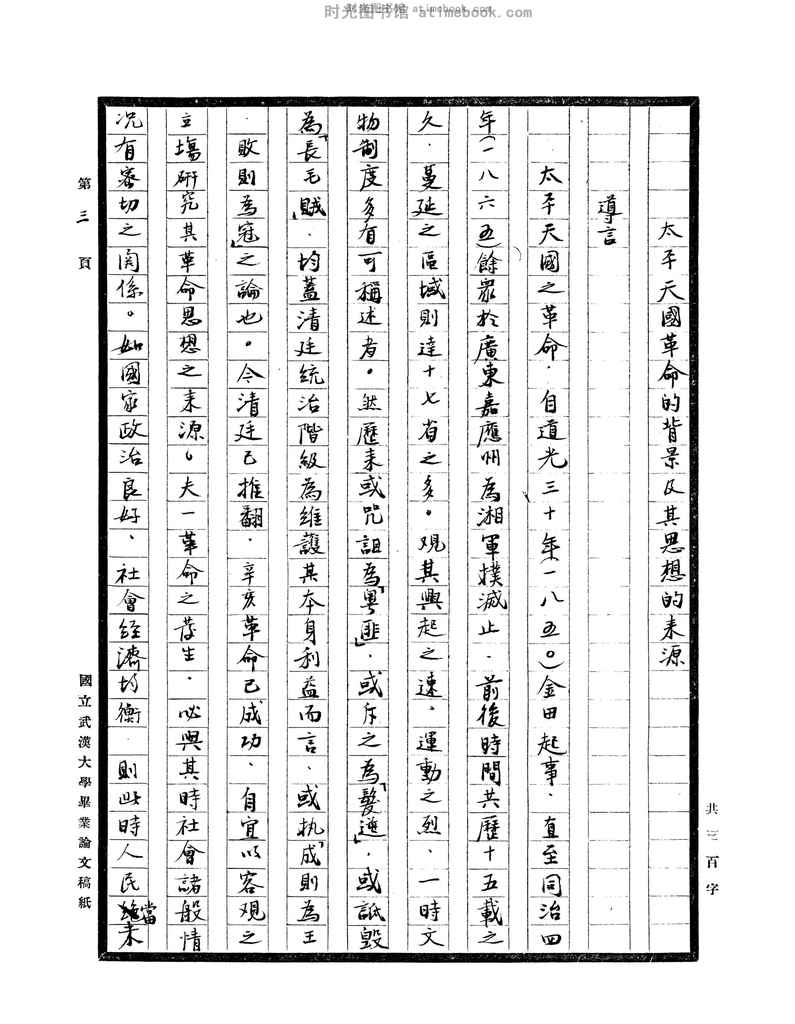 时光图书馆 atimebook.com
太平天國革命的背景及其思想的来源
導言
太平天國之革命．自道光三十年（一八五〇）金田起事．直至同治四
年（一八六五）餘眾於廣東嘉應州為湘軍撲滅止．前後時間共歷十五載之
久．蔓延之區域則達十七省之多。观其興起之速、運動之烈、一時文
物制度多有可稱述者。然歷来或咒詛為「粵匪」．或斥之為「髮逆」．或詆毀
為「長毛賊」．均蓋清廷統治階級為維護其本身利益而言、或执「成則為王
．敗則為寇」之論也。今清廷已推翻．辛亥革命已成功、自宜以客观之
立場研究其革命思想之来源。夫一革命之發生．必與其時社會諸般情
况有密切之関係。如國家政治良好、社會経濟均衡．則此時人民當未
第三頁
國立武漢大學畢業論文稿紙
共三百字